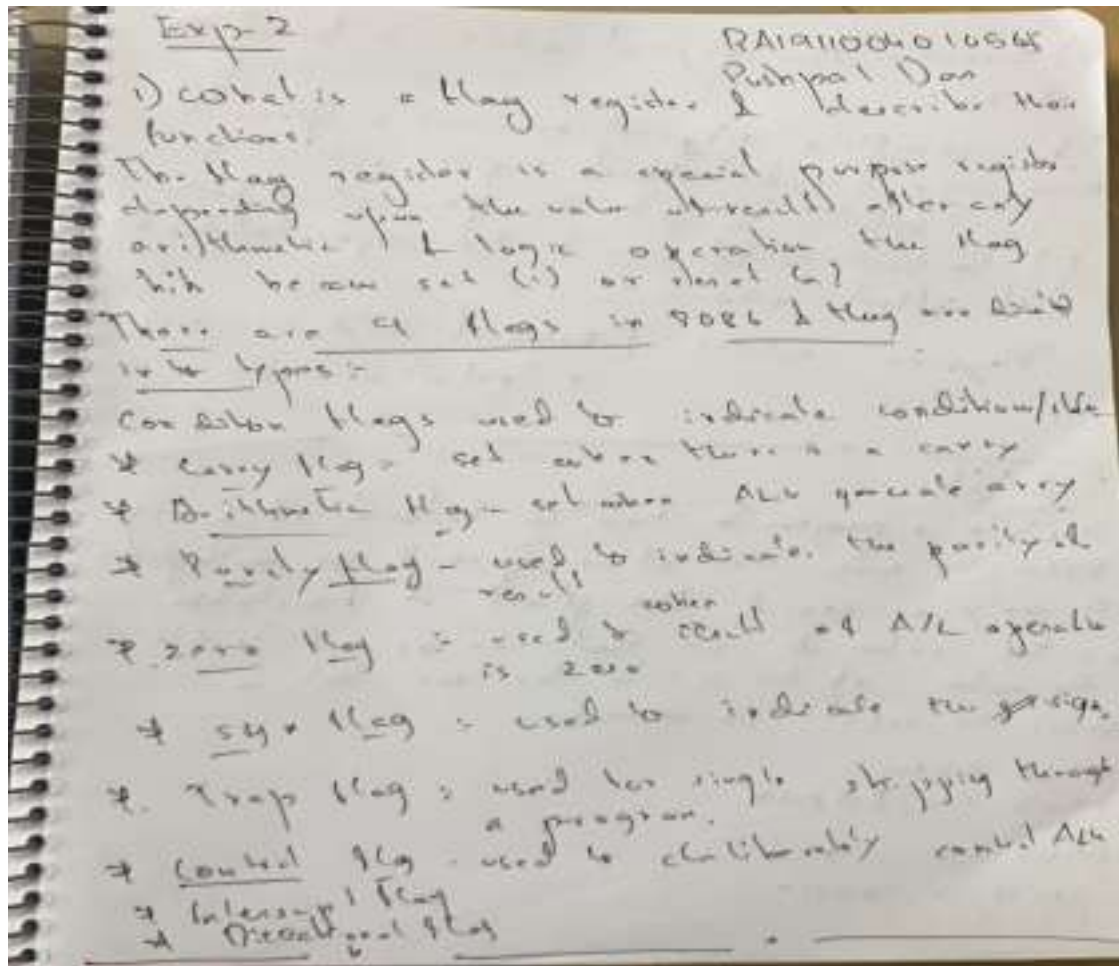 Exp-2
RA1911004010565
Pushpal Das
1) What is a flag register & describe their
functions.
The flag register is a special purpose register
depending upon the value of result after any
arithmetic & logic operation the flag
bits become set (1) or reset (0)
There are 9 flags in 8086 & they are
in types:-
Condition flags used to indicate condition/
* Carry flag - set when there is a carry
* Arithmetic flag - set when ALU generate
* Parity flag - used to indicate the parity of
result
* zero flag - used to when result of A/L operation
is zero
* sign flag - used to indicate the sign.
* Trap flag - used for single stepping through
a program.
* Control flag - used to deliberately control ALU
* Interrupt flag
* Directional flag